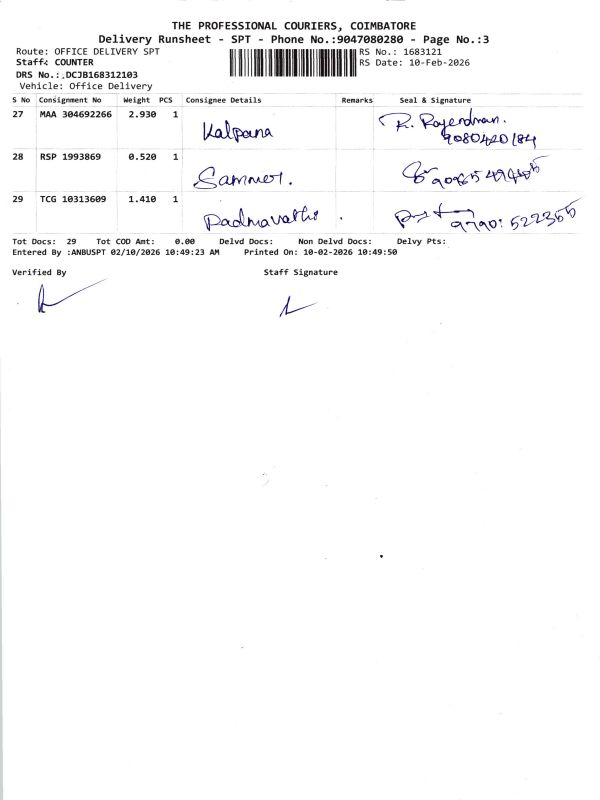 THE PROFESSIONAL COURIERS, COIMBATORE
Delivery Runsheet - SPT - Phone No.:9047080280 - Page No.:3
Route: OFFICE DELIVERY SPT RS No.: 1683121
Staff: COUNTER RS Date: 10-Feb-2026
DRS No.: DCJB168312103
Vehicle: Office Delivery
S No Consignment No Weight PCS Consignee Details Remarks Seal & Signature
27 MAA 304692266 2.930 1 Kalpana R. Rajendran.
9080420184
28 RSP 1993869 0.520 1 Sammer.
29 TCG 10313609 1.410 1 Padmavathi
Tot Docs: 29 Tot COD Amt: 0.00 Delvd Docs: Non Delvd Docs: Delvy Pts:
Entered By :ANBUSPT 02/10/2026 10:49:23 AM Printed On: 10-02-2026 10:49:50
Verified By Staff Signature